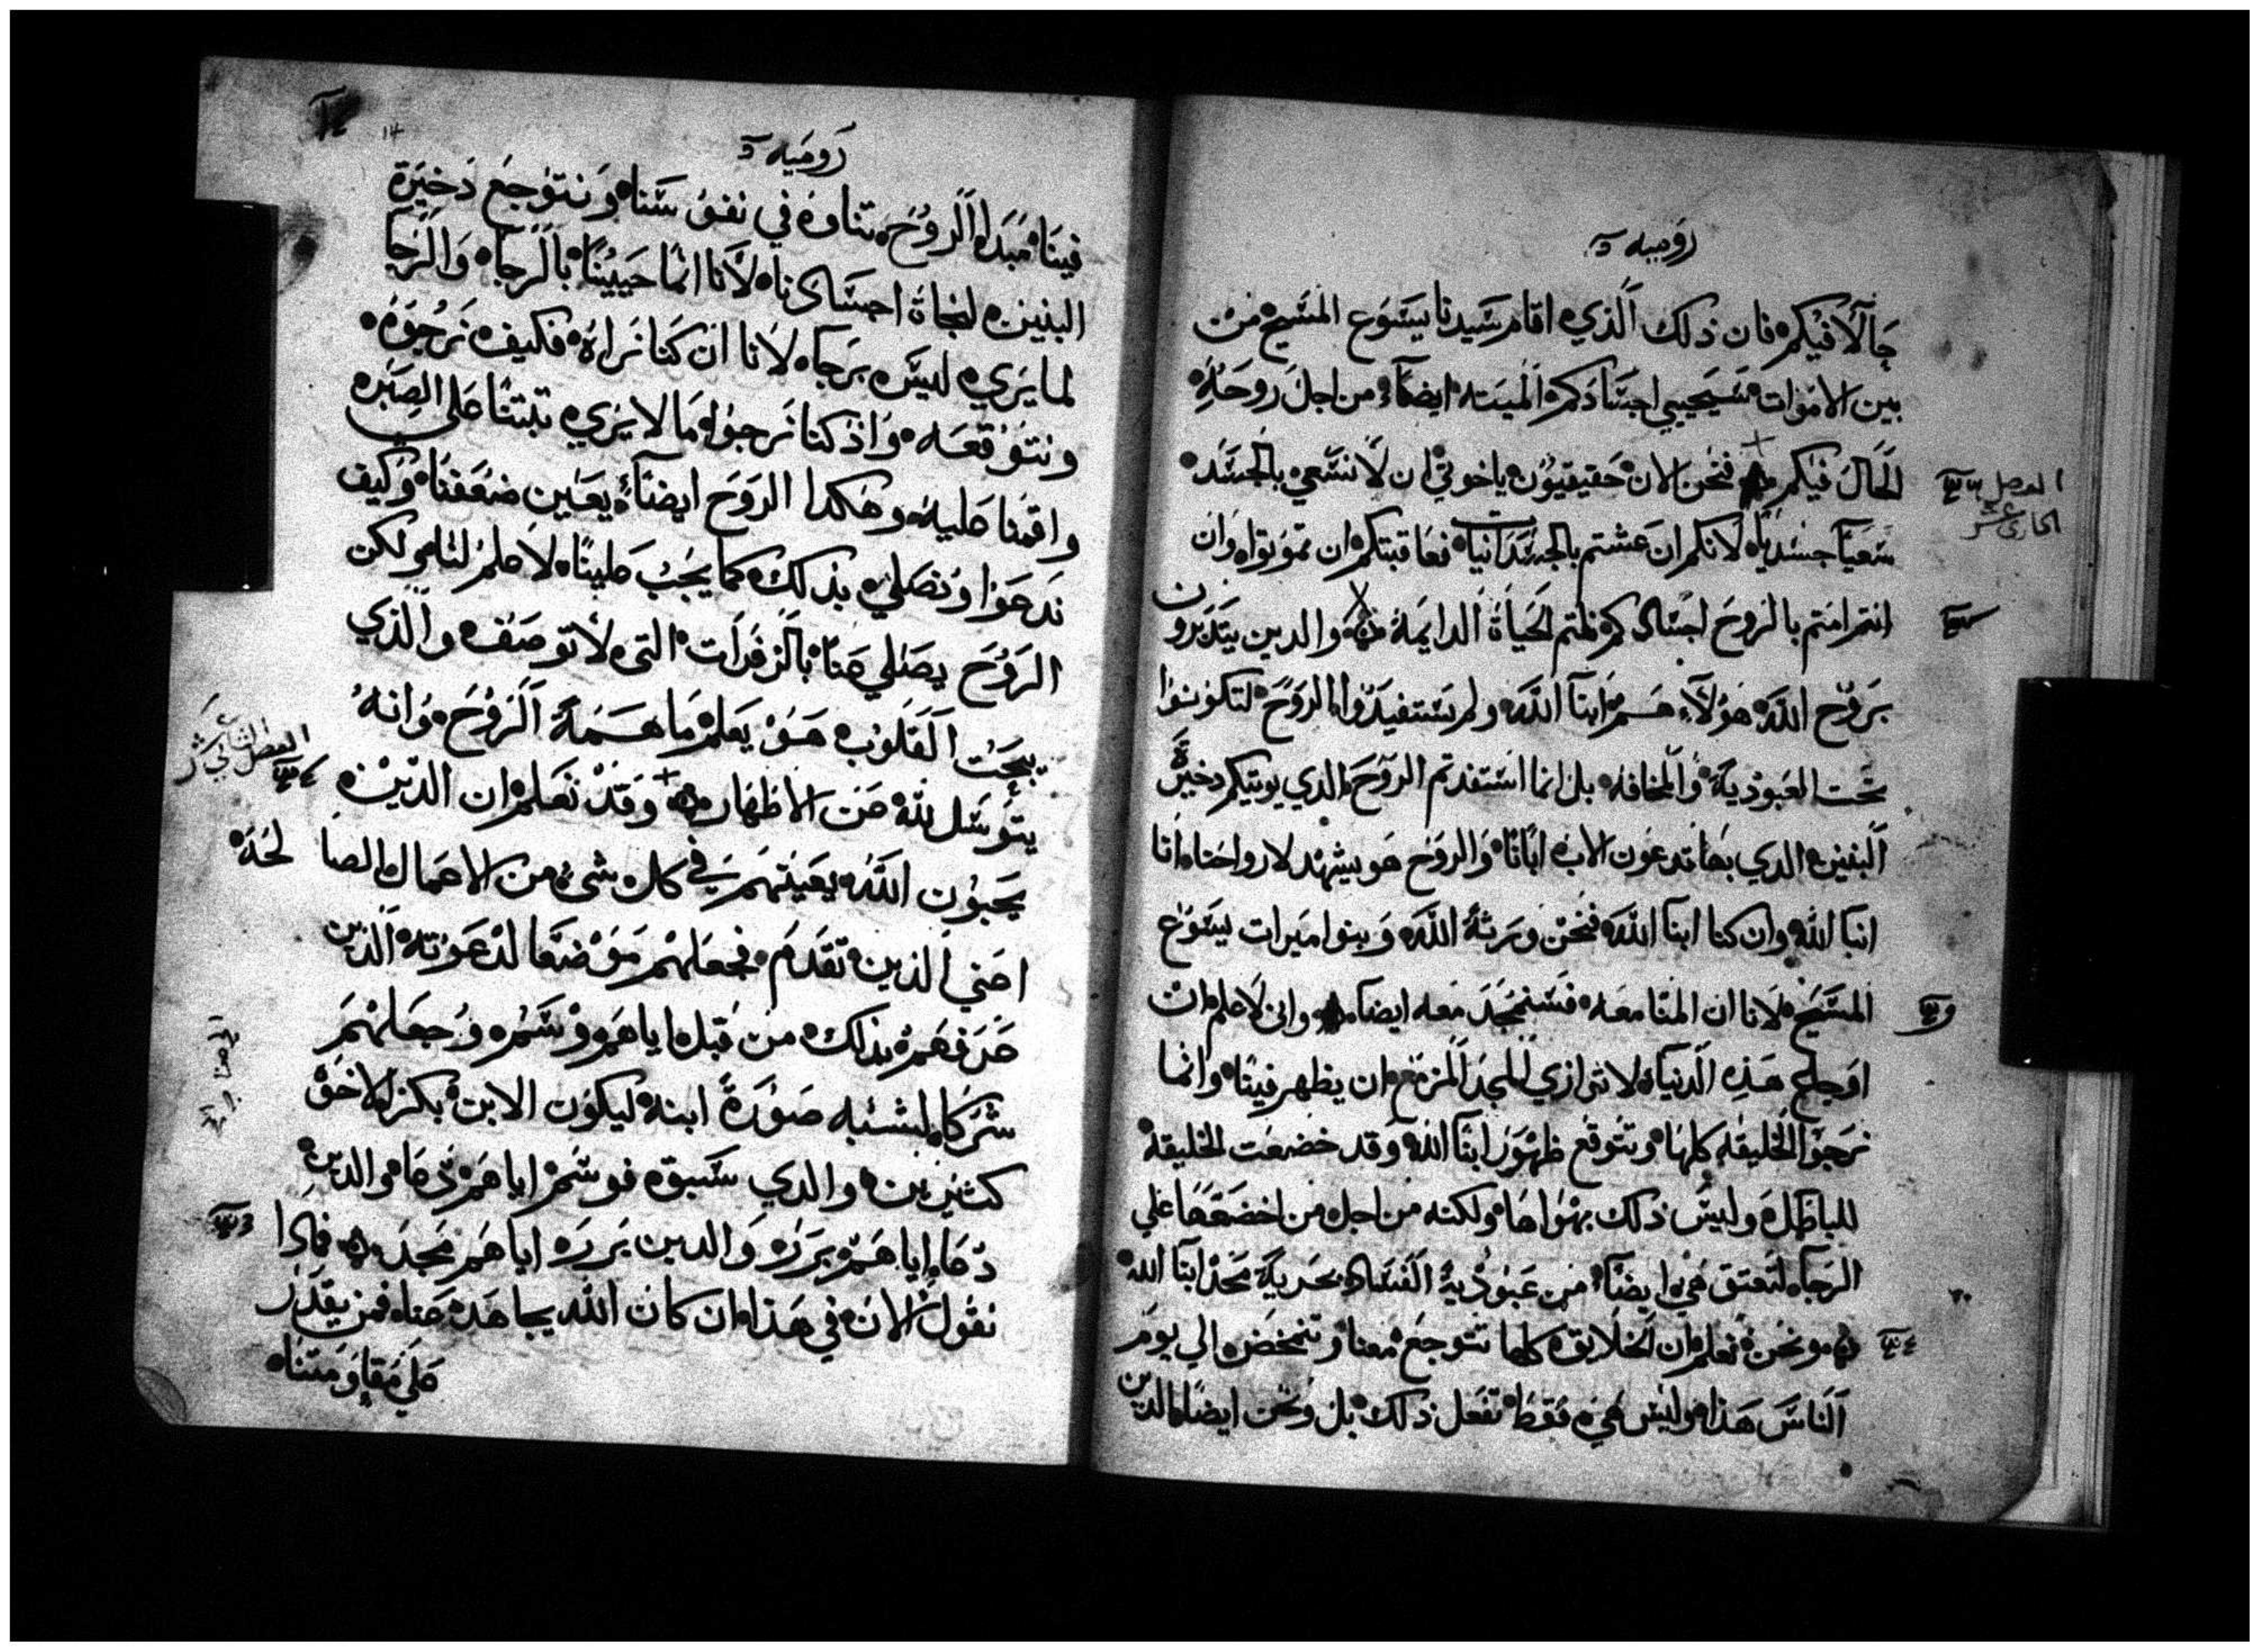 روميه
حالًا فيكم فان ذلك الذي اقام سيدنا يسوع المسيح من
بين الاموات سيحيي اجسادكم الميته ايضاً من اجل روحه
الحال فيكم فنحن الان حقيقيون ياخوتي ان لا نسعي بالجسد
الفصل
الحادي عشر
سعياً جسدياً لانكم ان عشتم بالجسدانيا فعاقبتكم ان تموتوا وان
انتم امتم بالروح اجسادكم نلتم الحياة الدايمة والدين يتدبرون
بروح الله هولاء هم ابنا الله ولم تستفيدوا الروح لتكونوا
تحت العبودية والمخافه بل انما استفدتم الروح الدي يوتيكم دخيرة
البنين الدي بها تدعون الاب ابانا والروح هو يشهد لارواحنا انا
ابنا الله وان كنا ابنا الله فنحن ورثة الله وبنوا ميرات يسوع
المسيح لانا ان المنا معه فسنمجد معه ايضا واني لاعلم ان
اوجاع هذه الدنيا لا توازي المجد المزمع ان يظهر فينا وانما
نرجو الخليقه كلها وتتوقع ظهور ابنا الله وقد خضعت الخليقة
للباطل وليس ذلك بهواها ولكنه من اجل من اخضعها علي
الرجا لتعتق هي ايضاً من عبودية الفساد بحرية مجد ابنا الله
ونحن نعلم ان الخلايق كلها تتوجع معنا وتتمخض الي يوم
الناس هذا وليس هي فقط تفعل ذلك بل ونحن ايضا الدين
روميه
فينا مبدا الروح نتناوه في نفوسنا ونتوجع دخيرة
البنين لنجاة اجسادنا لانا انما حيينا بالرجا والرجا
لما يري ليس برجا لانا ان كنا نراه فكيف نرجوه
ونتوقعه واذ كنا نرجوا ما لا يري تبتنا علي الصبر
واقمنا عليه وهكدا الروح ايضاً يعين ضعفنا وكيف
ندعوا ونصلي بذلك كما يجب علينا لا علم لنا ولكن
الروح يصلي عنا بالزفرات التي لا توصف والذي
يبحت القلوب هو يعلم ما همة الروح وانه
يتوسل لله عن الاظهار وقد نعلم ان الدين
الفصل الثاني عشر
يحبون الله يعينهم في كل شي من الاعمال الصالحة
اعني الذين تقدم فجعلهم موضعا لدعوته الذين
عرفهم بذلك من قبل اياهم وسم وجعلهم
شركا لشبه صورة ابنه ليكون الابن بكر الاخوة
كثيرين والدي سبق فوسم اياهم دعا والدين
دعا اياهم برر والدين برر اياهم مجد فمادا
نقول الان في هذا ان كان الله يجاهد عنا فمن يقدر
علي مقاومتنا